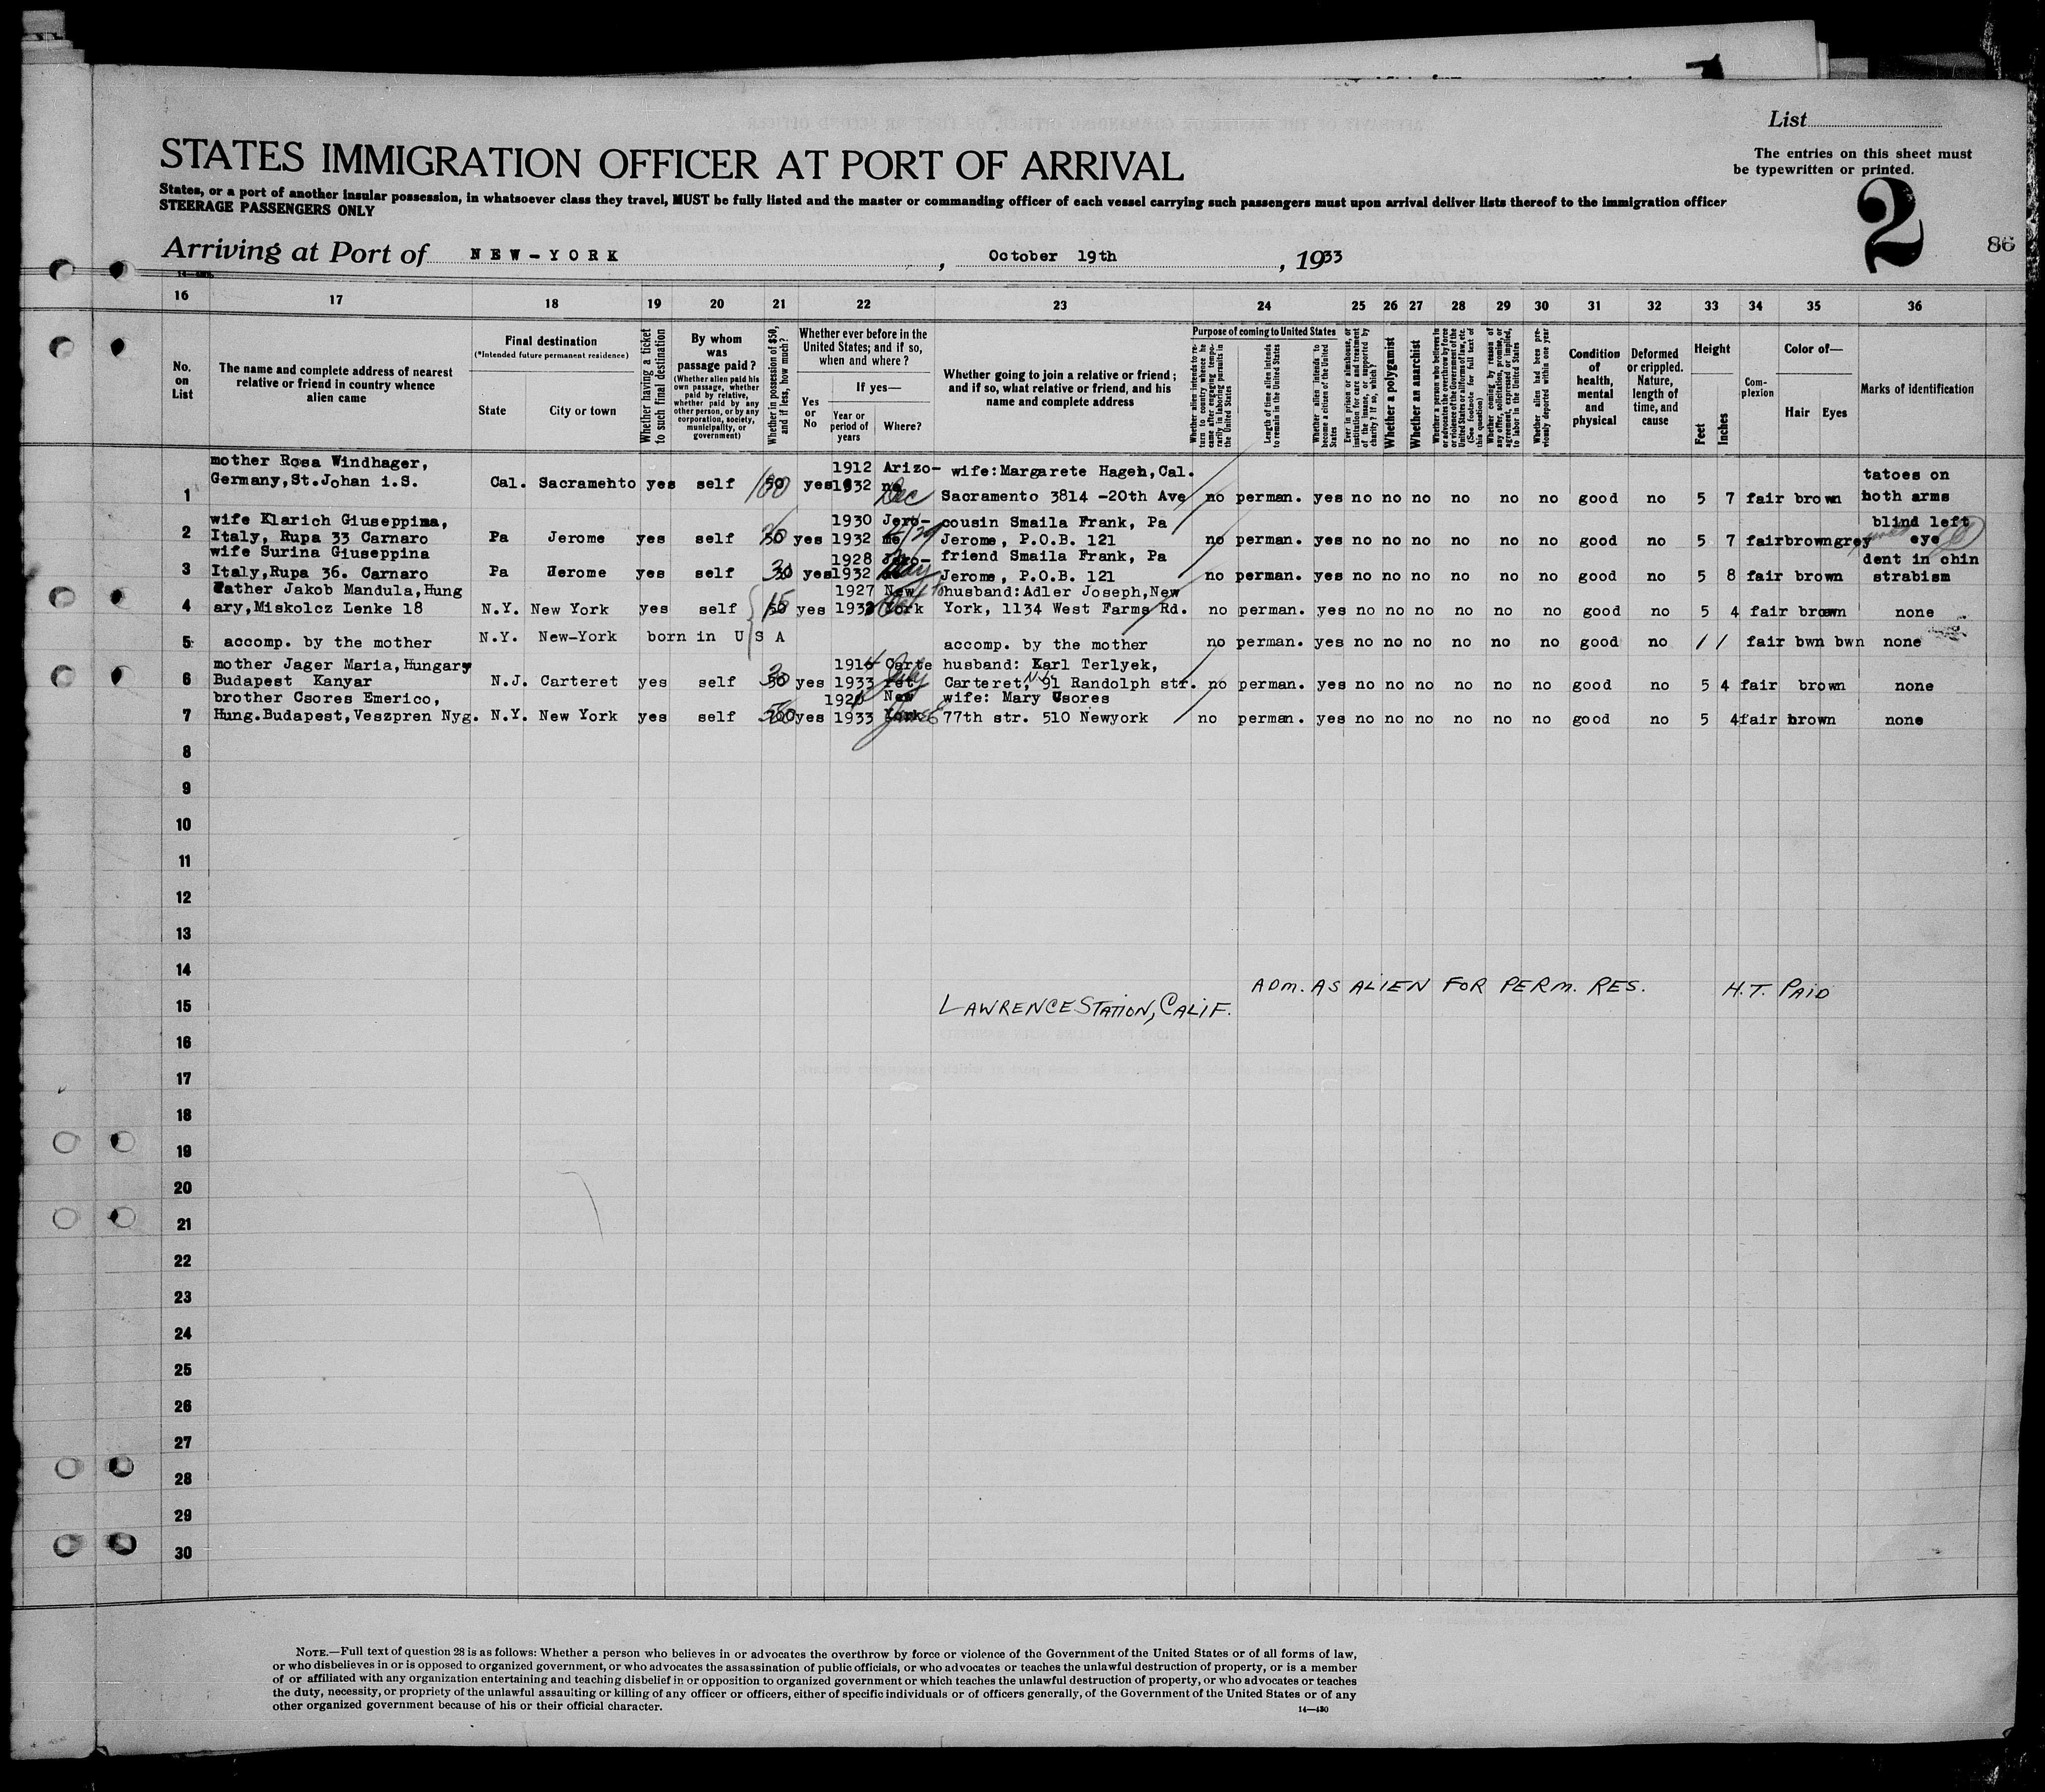 List
STATES IMMIGRATION OFFICER AT PORT OF ARRIVAL
The entries on this sheet must
be typewritten or printed.
States, or a port of another insular possession, in whatsoever class they travel, MUST be fully listed and the master or commanding officer of each vessel carrying such passengers must upon arrival deliver lists thereof to the immigration officer
STEERAGE PASSENGERS ONLY
2
86
Arriving at Port of NEW-YORK, October 19th, 1933
16 17 18 19 20 21 22 23 24 25 26 27 28 29 30 31 32 33 34 35 36
No. on List
The name and complete address of nearest relative or friend in country whence alien came
Final destination
(*Intended future permanent residence)
State
City or town
Whether having a ticket to such final destination
By whom was passage paid?
(Whether alien paid his own passage, whether paid by relative, whether paid by any other person, or by any corporation, society, municipality, or government)
Whether in possession of $50, and if less, how much?
Whether ever before in the United States; and if so, when and where?
Yes or No
If yes—
Year or period of years
Where?
Whether going to join a relative or friend; and if so, what relative or friend, and his name and complete address
Purpose of coming to United States
Whether alien intends to return to country whence he came after engaging temporarily in laboring pursuits in the United States
Length of time alien intends to remain in the United States
Whether alien intends to become a citizen of the United States
Ever in prison or almshouse, or institution for care and treatment of the insane, or supported by charity? If so, which?
Whether a polygamist
Whether an anarchist
Whether a person who believes in or advocates the overthrow by force or violence of the Government of the United States or all forms of law, etc. (See footnote for full text of this question)
Whether coming by reason of any offer, solicitation, promise, or agreement, expressed or implied, to labor in the United States
Whether alien had been previously deported within one year
Condition of health, mental and physical
Deformed or crippled. Nature, length of time, and cause
Height
Feet
Inches
Complexion
Color of—
Hair Eyes
Marks of identification
mother Rosa Windhager, 1912 Arizo- wife:Margarete Hagen,Cal. tatoes on
1 Germany,St.Johan i.S. Cal. Sacramento yes self 100 yes 1932 na Dec Sacramento 3814 -20th Ave no perman. yes no no no no no no good no 5 7 fair brown both arms
wife Klarich Giuseppina, 1930 Jero- cousin Smaila Frank, Pa blind left
2 Italy, Rupa 33 Carnaro Pa Jerome yes self yes 1932 me Jerome, P.O.B. 121 no perman. yes no no no no no no good no 5 7 fair brown grey eye
wife Surina Giuseppina 1928 Jero- friend Smaila Frank, Pa dent in chin
3 Italy,Rupa 36. Carnaro Pa Jerome yes self 30 yes 1932 Jerome, P.O.B. 121 no perman. yes no no no no no no good no 5 8 fair brown strabism
Father Jakob Mandula,Hung 1927 New husband:Adler Joseph,New
4 ary,Miskolcz Lenke 18 N.Y. New York yes self 15 yes 1932 York York, 1134 West Farms Rd. no perman. yes no no no no no no good no 5 4 fair brown none
5 accomp. by the mother N.Y. New-York born in U S A accomp. by the mother no perman. yes no no no no no no good no / / fair bwn bwn none
mother Jager Maria,Hungary 1914 Carte husband: Karl Terlyek,
6 Budapest Kanyar N.J. Carteret yes self 30 yes 1933 ret July Carteret, NJ 91 Randolph str. no perman. yes no no no no no no good no 5 4 fair brown none
brother Csores Emerico, 1926 New wife: Mary Csores
7 Hung.Budapest,Veszpren Nyg. N.Y. New York yes self yes 1933 York 77th str. 510 Newyork no perman. yes no no no no no no good no 5 4 fair brown none
8
9
10
11
12
13
14 ADM. AS ALIEN FOR PERM. RES. H.T. PAID
15 LAWRENCE STATION, CALIF.
16
17
18
19
20
21
22
23
24
25
26
27
28
29
30
NOTE.—Full text of question 28 is as follows: Whether a person who believes in or advocates the overthrow by force or violence of the Government of the United States or of all forms of law,
or who disbelieves in or is opposed to organized government, or who advocates the assassination of public officials, or who advocates or teaches the unlawful destruction of property, or is a member
of or affiliated with any organization entertaining and teaching disbelief in or opposition to organized government or which teaches the unlawful destruction of property, or who advocates or teaches
the duty, necessity, or propriety of the unlawful assaulting or killing of any officer or officers, either of specific individuals or of officers generally, of the Government of the United States or of any
other organized government because of his or their official character.
14—430